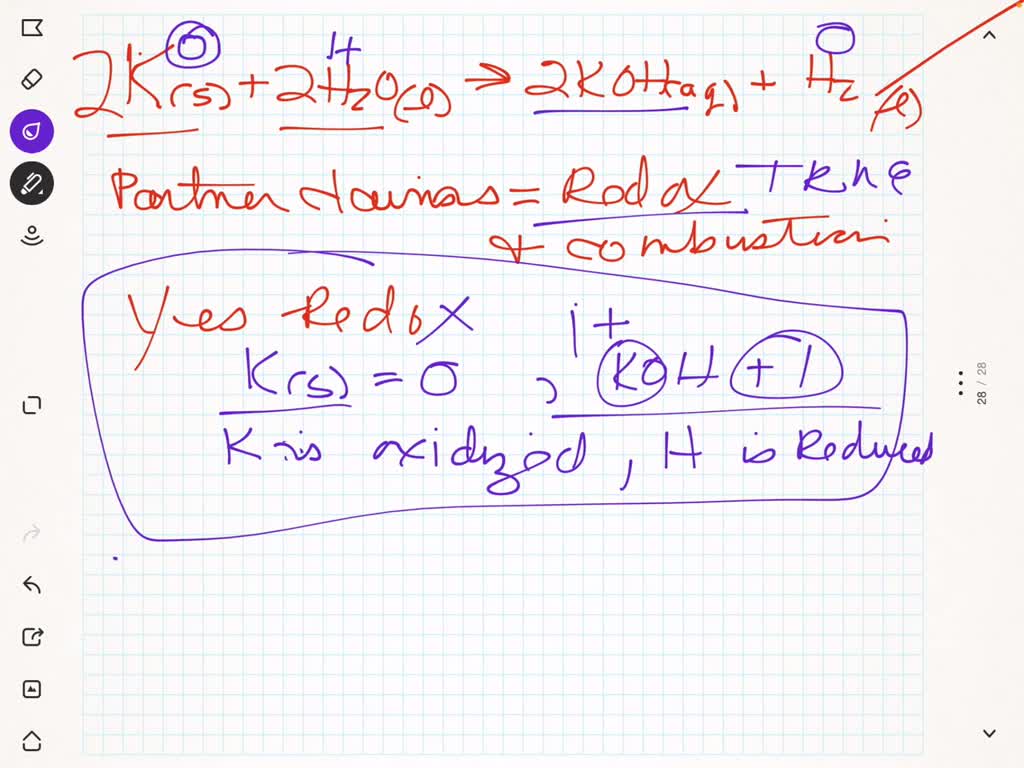 0 1+ 0
2K(s) + 2H₂O(l) → 2KOH(aq) + H₂ (l)
Partner = Redox
+ combustion
Yes Redox 1+
K(s) = 0 , KOH +1
K is oxidized, H is Reduced
28 / 28